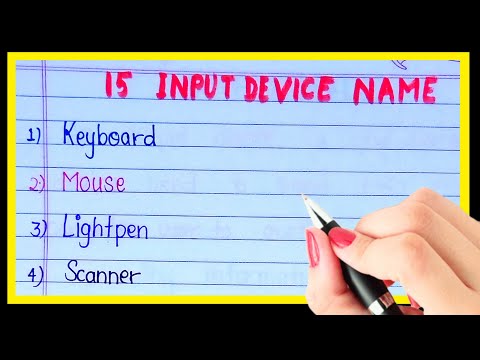 15 INPUT DEVICE NAME
1) Keyboard
2) Mouse
3) Lightpen
4) Scanner